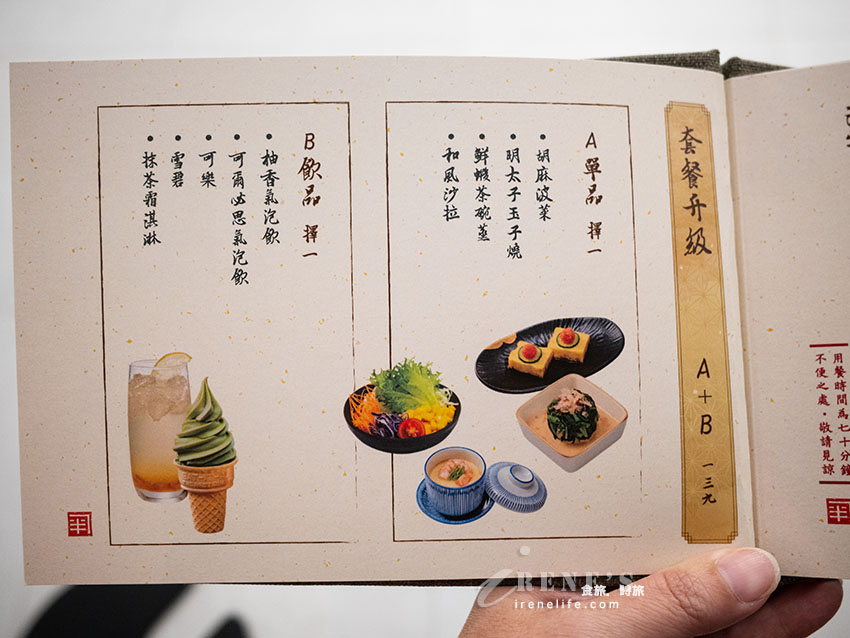 套餐升級 A+B 一三九
A單品 擇一
• 胡麻波菜
• 明太子玉子燒
• 鮮蝦茶碗蒸
• 和風沙拉
B飲品 擇一
• 柚香氣泡飲
• 可爾必思氣泡飲
• 可樂
• 雪碧
• 抹茶霜淇淋
用餐時間為七十分鐘
不便之處，敬請見諒
IRENE'S
食旅．時旅
irenelife.com